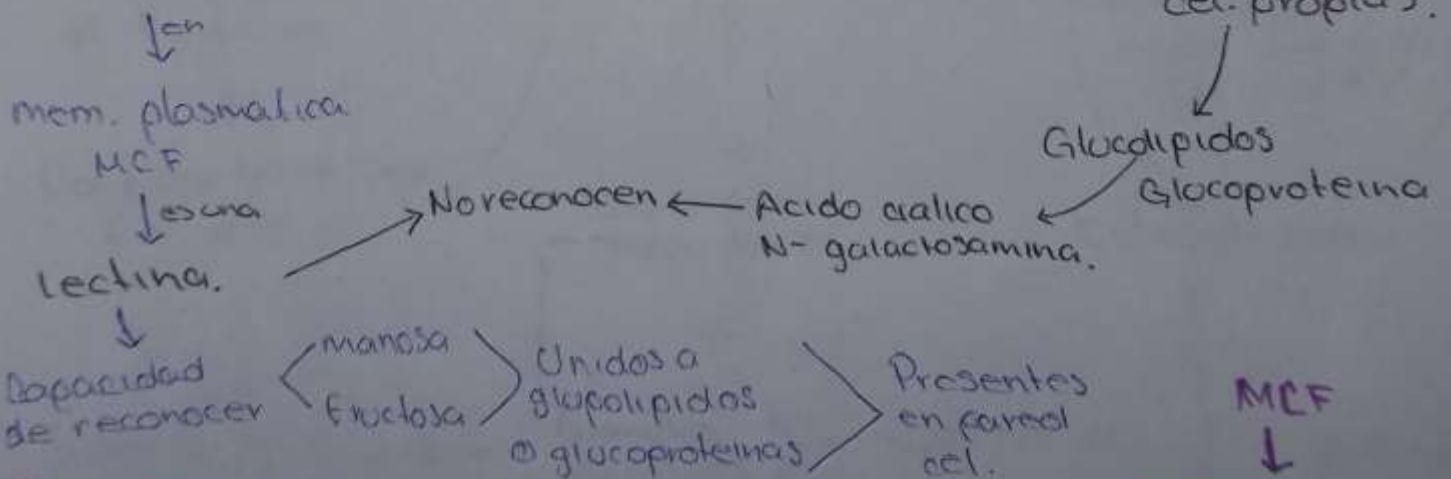 ↓en
cel. propias.
mem. plasmatica
MCF
↓es una
lectina.
↓
Capacidad
de reconocer
manosa
fructosa
Unidos a
glucolipidos
o glucoproteinas
Presentes
en pared
cel.
No reconocen ← Acido cialico
N- galactosamina.
Glucolipidos
Glocoproteina
MCF
↓